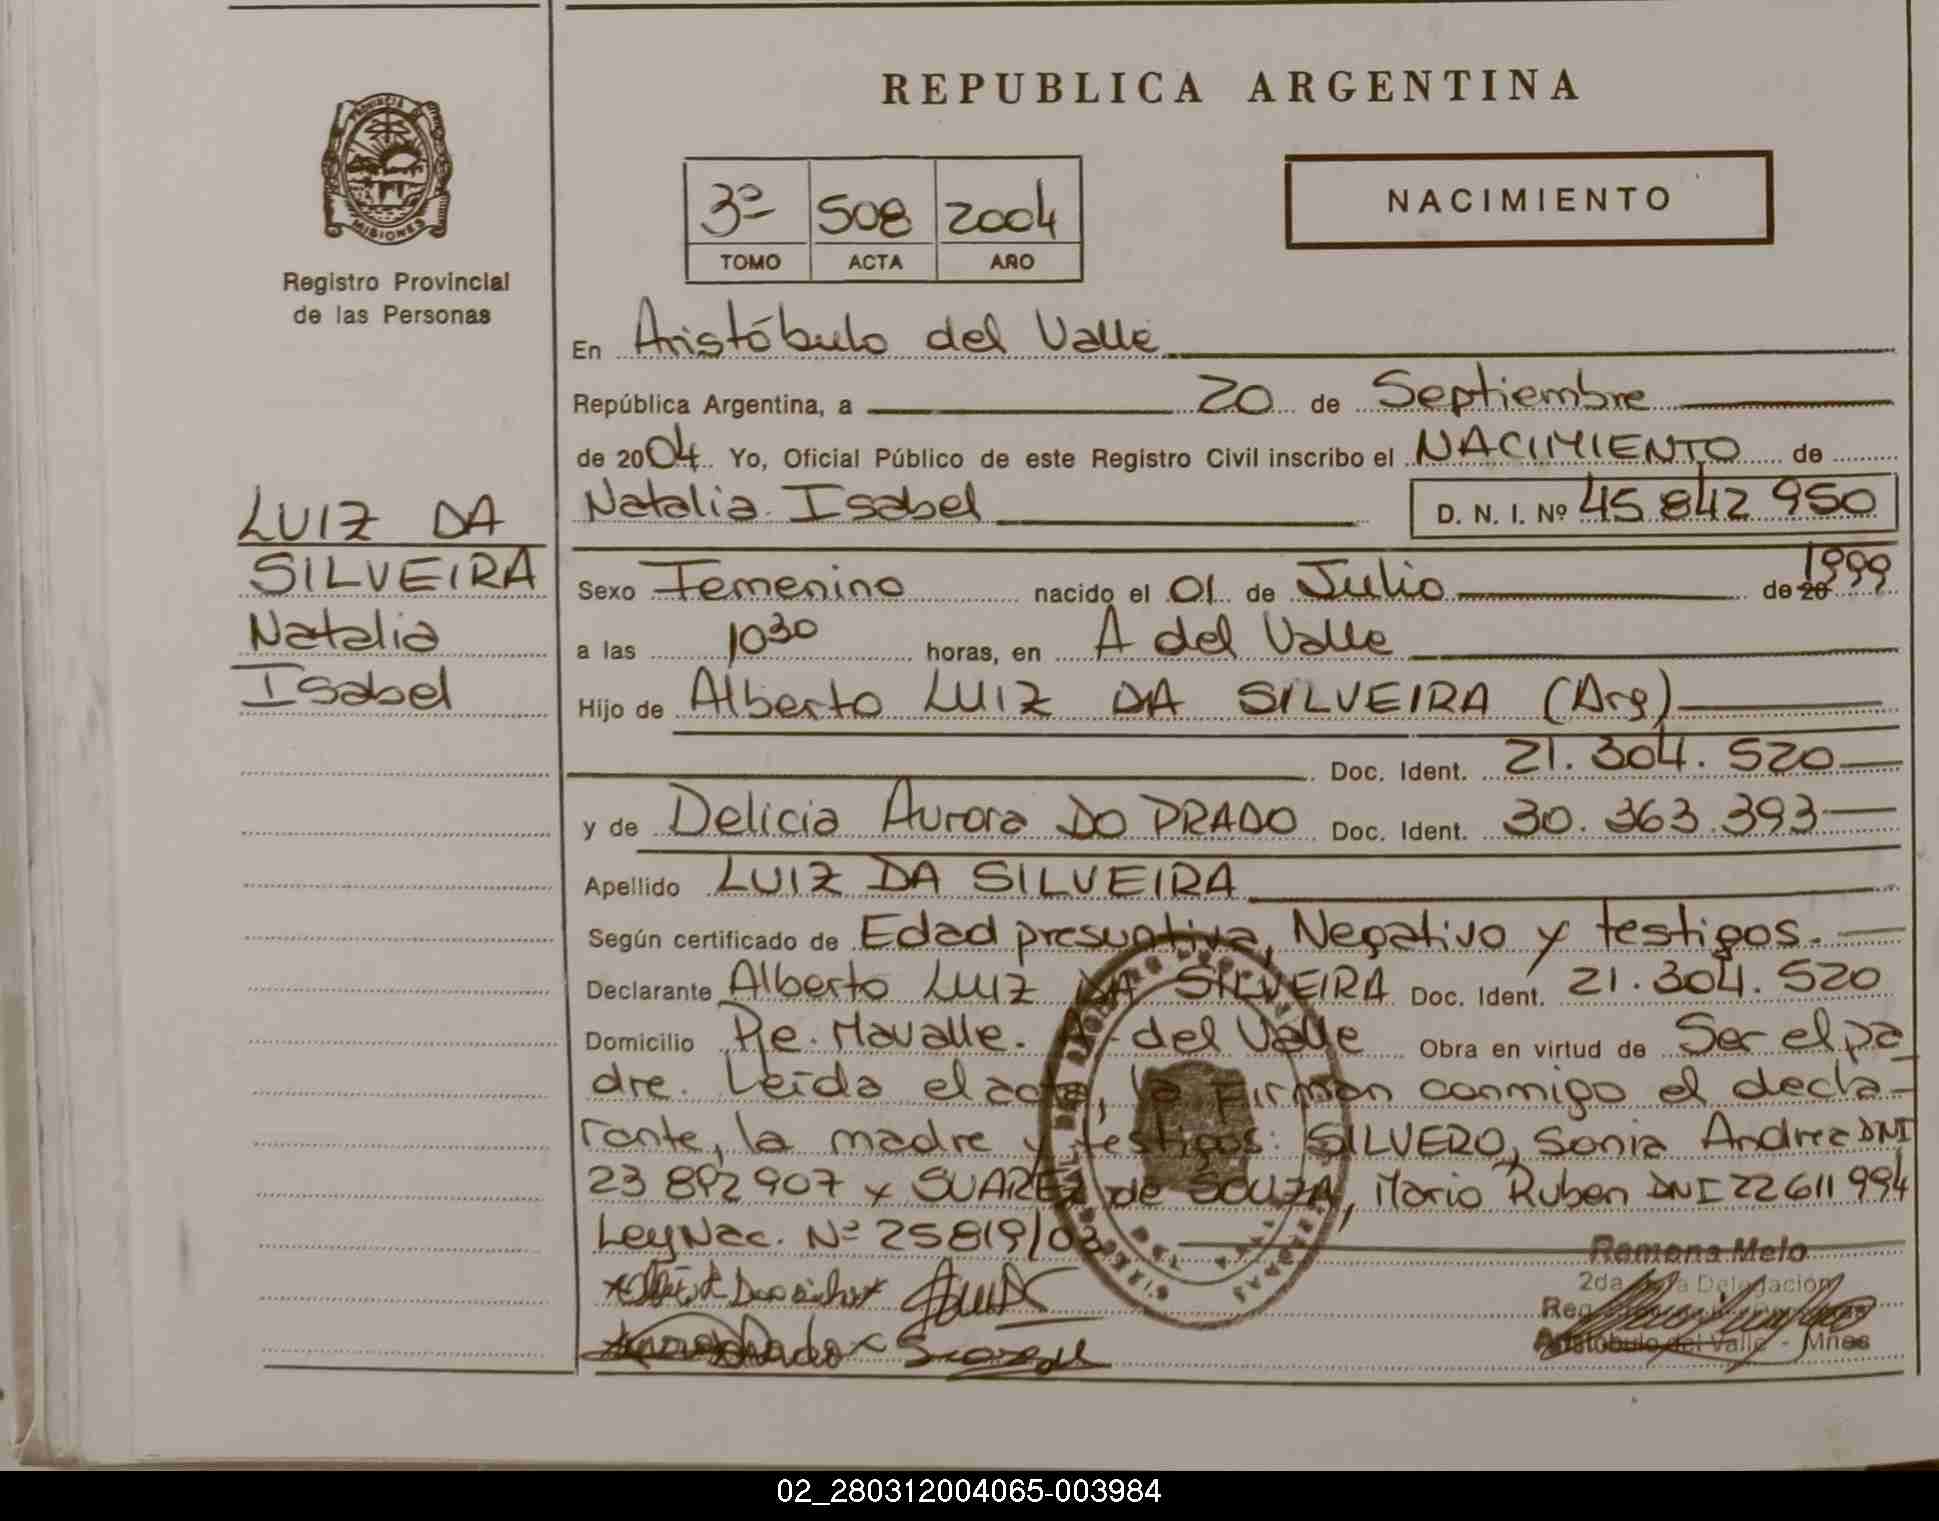 REPUBLICA ARGENTINA
PROVINCIA
MISIONES
Registro Provincial
de las Personas
3º 508 2004
TOMO ACTA AÑO
NACIMIENTO
LUIZ DA
SILVEIRA
Natalia
Isabel
En Aristóbulo del Valle
República Argentina, a 20 de Septiembre
de 2004. Yo, Oficial Público de este Registro Civil inscribo el NACIMIENTO de
Natalia Isabel D. N. I. Nº 45 842 950
Sexo Femenino nacido el 01 de Julio de 20 1999
a las 10 30 horas, en A del Valle
Hijo de Alberto LUIZ DA SILVEIRA (Arg)
Doc. Ident. 21.304.520
y de Delicia Aurora DO PRADO Doc. Ident. 30.363.393
Apellido LUIZ DA SILVEIRA
Según certificado de Edad presuntiva, Negativo y testigos.
Declarante Alberto LUIZ DA SILVEIRA Doc. Ident. 21.304.520
Domicilio Pje. Mavalle. A. del Valle Obra en virtud de Ser el pa
dre. Leída el acta, la firman conmigo el decla-
rante, la madre y testigos: SILVERO, Sonia Andrea DNI
23 892 907 y SUAREZ de SOUZA, Mario Ruben DNI 22 611 994
Ley Nac. Nº 25819/03
Ramona Melo
2da Delegación
Reg
Aristóbulo del Valle - Mnes
02_280312004065-003984